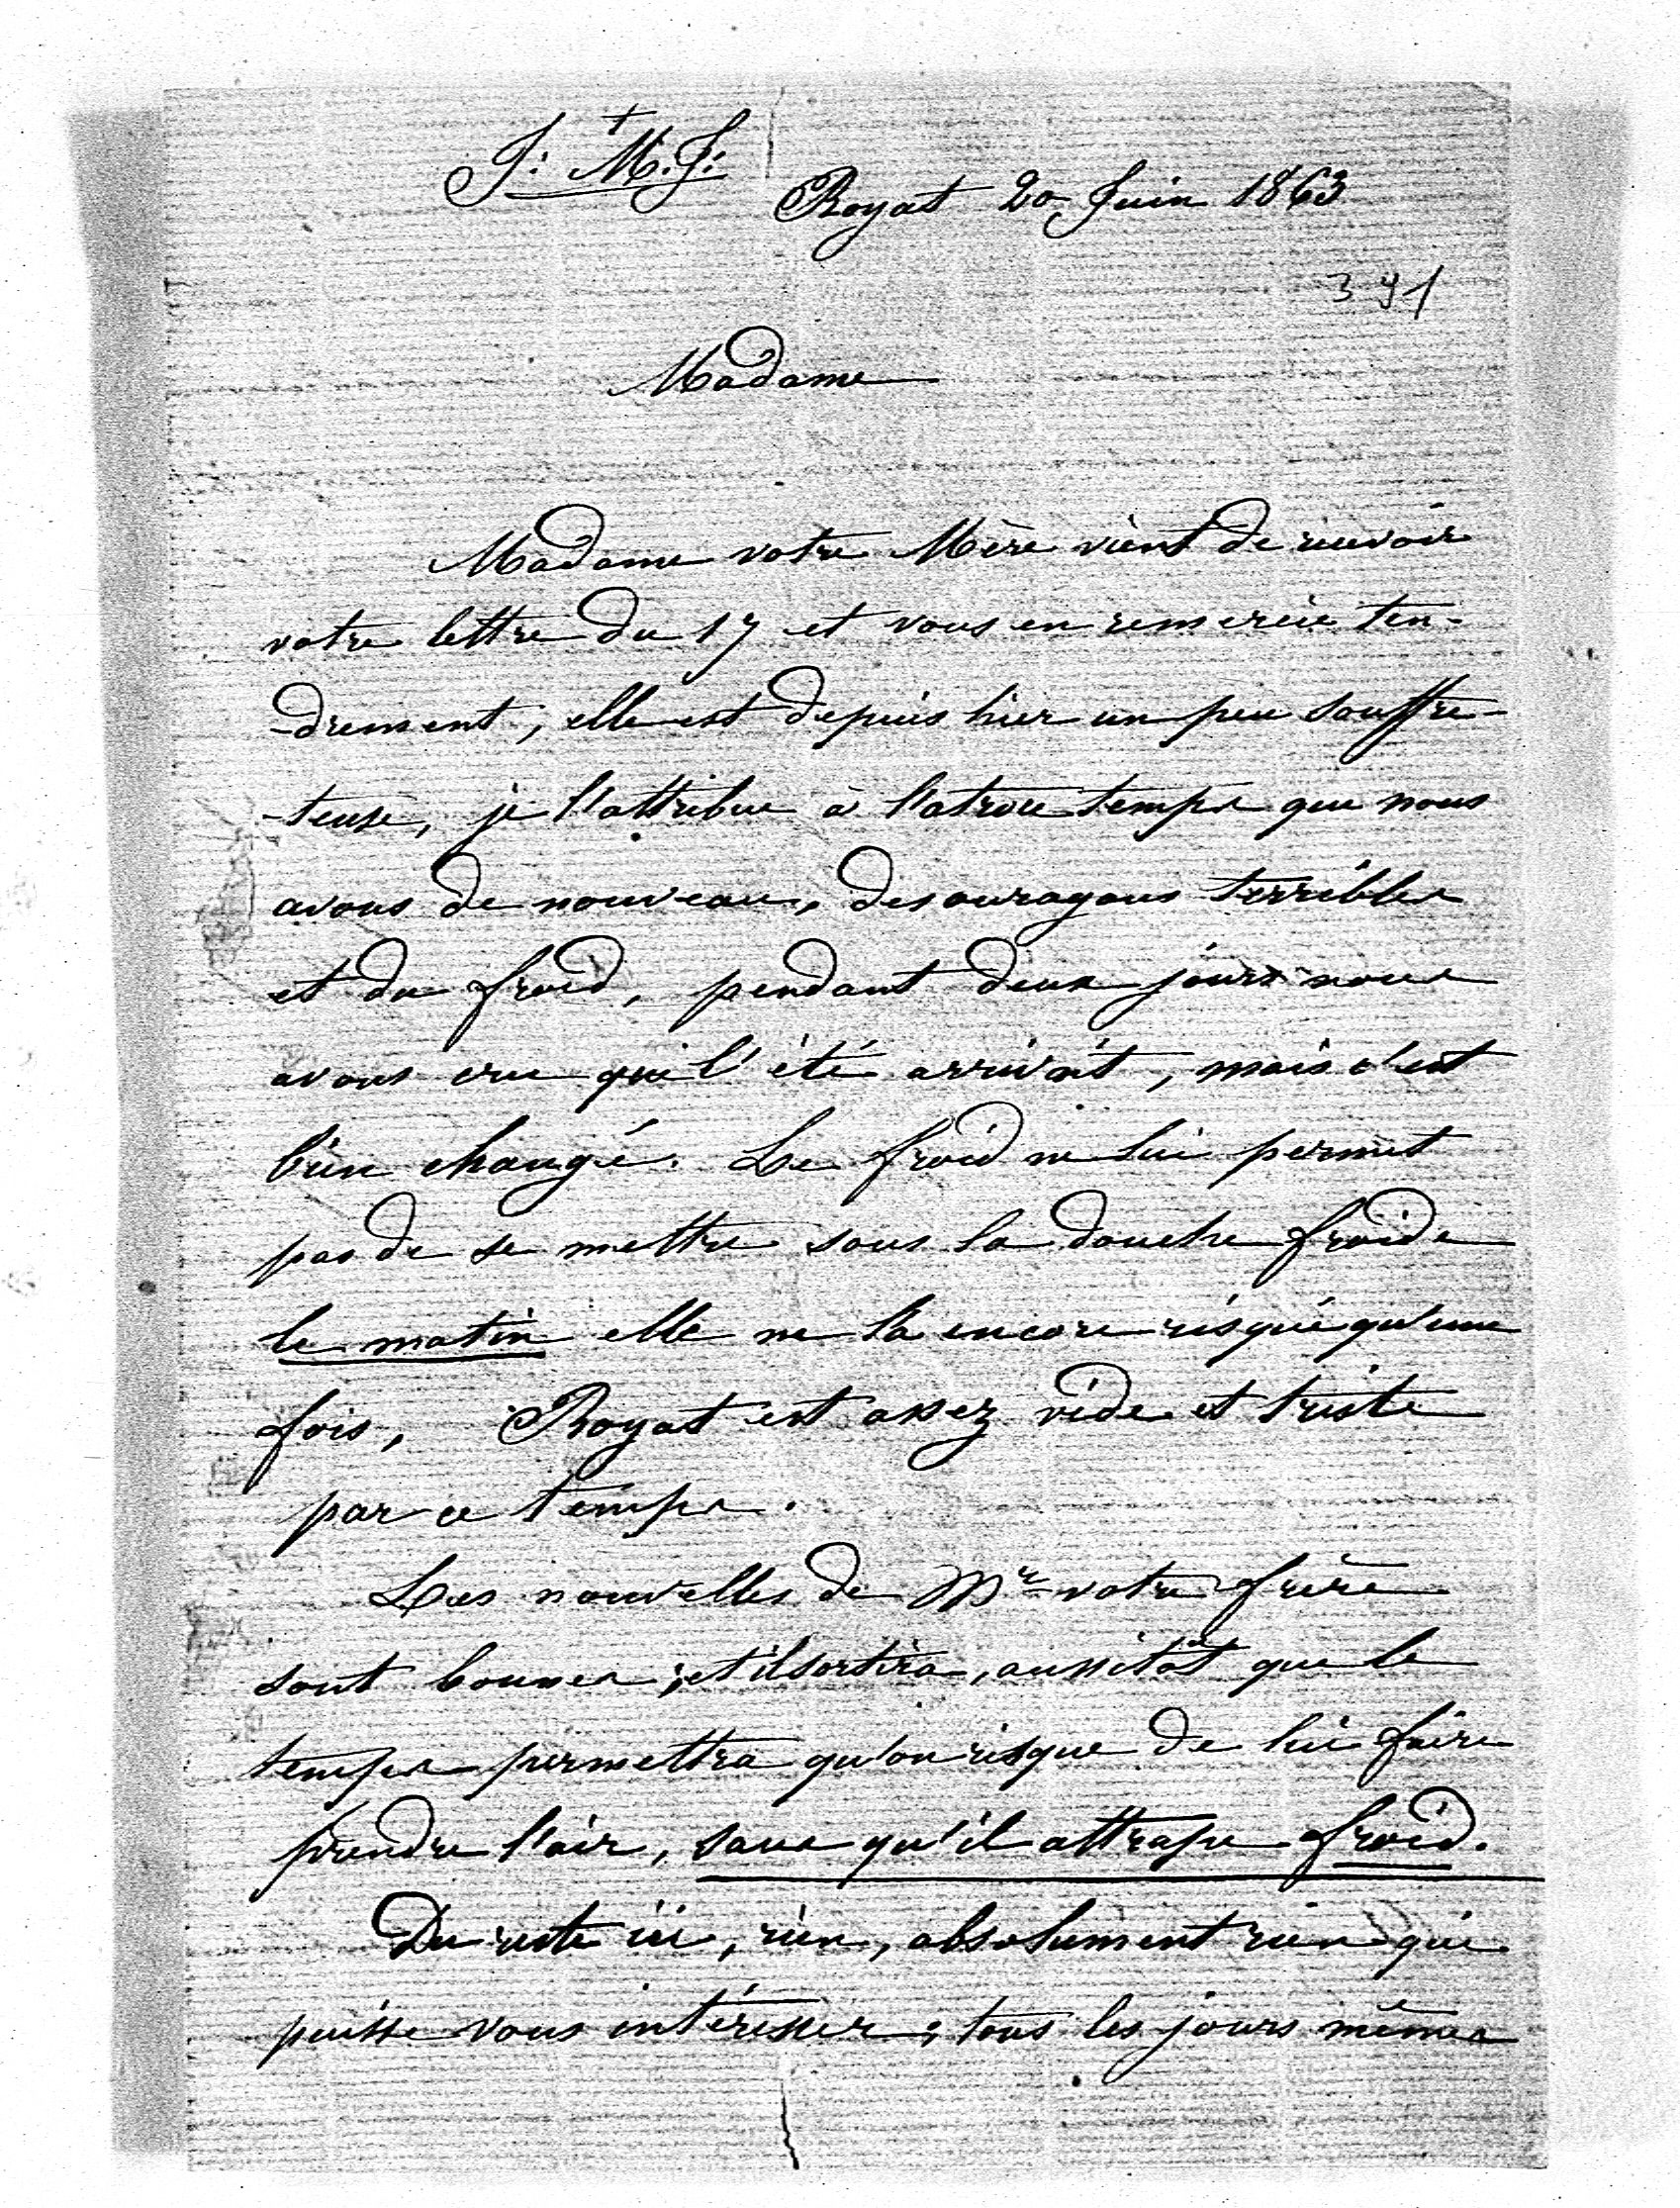 +
J: M. J:
Royat 20 Juin 1863
391
Madame
Madame votre Mère vient de recevoir
votre lettre du 17 et vous en remercie ten-
-drement, elle est depuis hier un peu souffre-
-teuse, je l'attribue à l'atroce temps que nous
avons de nouveau, des ouragans terribles
et du froid, pendant deux jours nous
avons cru que l'été arrivait, mais c'est
bien changé. Le froid ne lui permet
pas de se mettre sous la douche froide
le matin elle ne l'a encore risqué qu'une
fois, Royat est assez vide et triste
par ce temps.
Les nouvelles de Mr votre frère
sont bonnes; et il sortira, aussitôt que le
temps permettra qu'on risque de lui faire
prendre l'air, sans qu'il attrape froid.
Du reste ici, rien, absolument rien qui
puisse vous intéresser; tous les jours mêmes